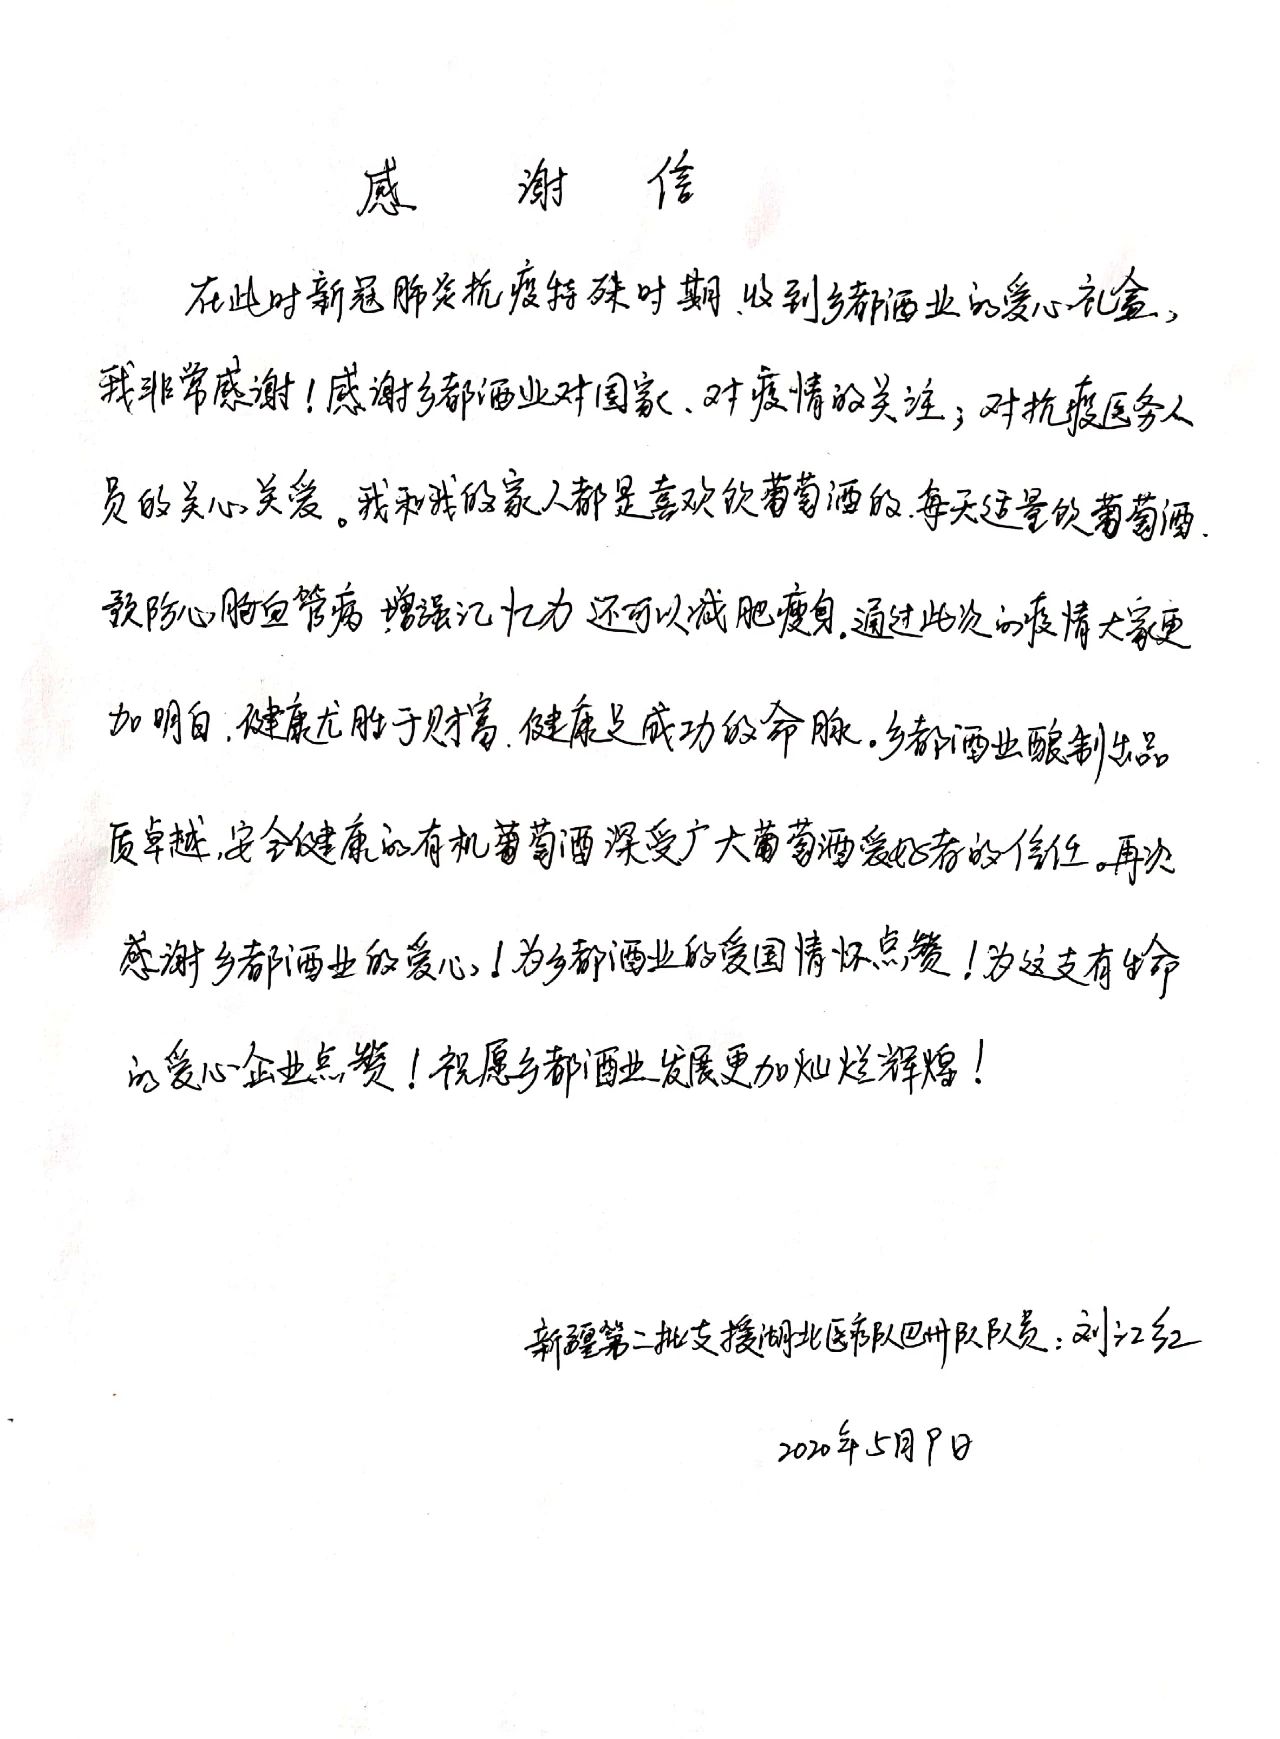 感谢信
在此时新冠肺炎抗疫特殊时期、收到乡都酒业的爱心礼盒,
我非常感谢!感谢乡都酒业对国家、对疫情的关注;对抗疫医务人
员的关心关爱。我和我的家人都是喜欢饮葡萄酒的、每天适量饮葡萄酒、
预防心脑血管病 增强记忆力 还可以减肥瘦身。通过此次的疫情大家更
加明白、健康尤胜于财富、健康是成功的命脉。乡都酒业酿制出品
质卓越、安全健康的有机葡萄酒深受广大葡萄酒爱好者的信任。再次
感谢乡都酒业的爱心!为乡都酒业的爱国情怀点赞!为这支有生命
的爱心企业点赞!祝愿乡都酒业发展更加灿烂辉煌!
新疆第二批支援湖北医疗队巴州队队员:刘江红
2020年5月9日